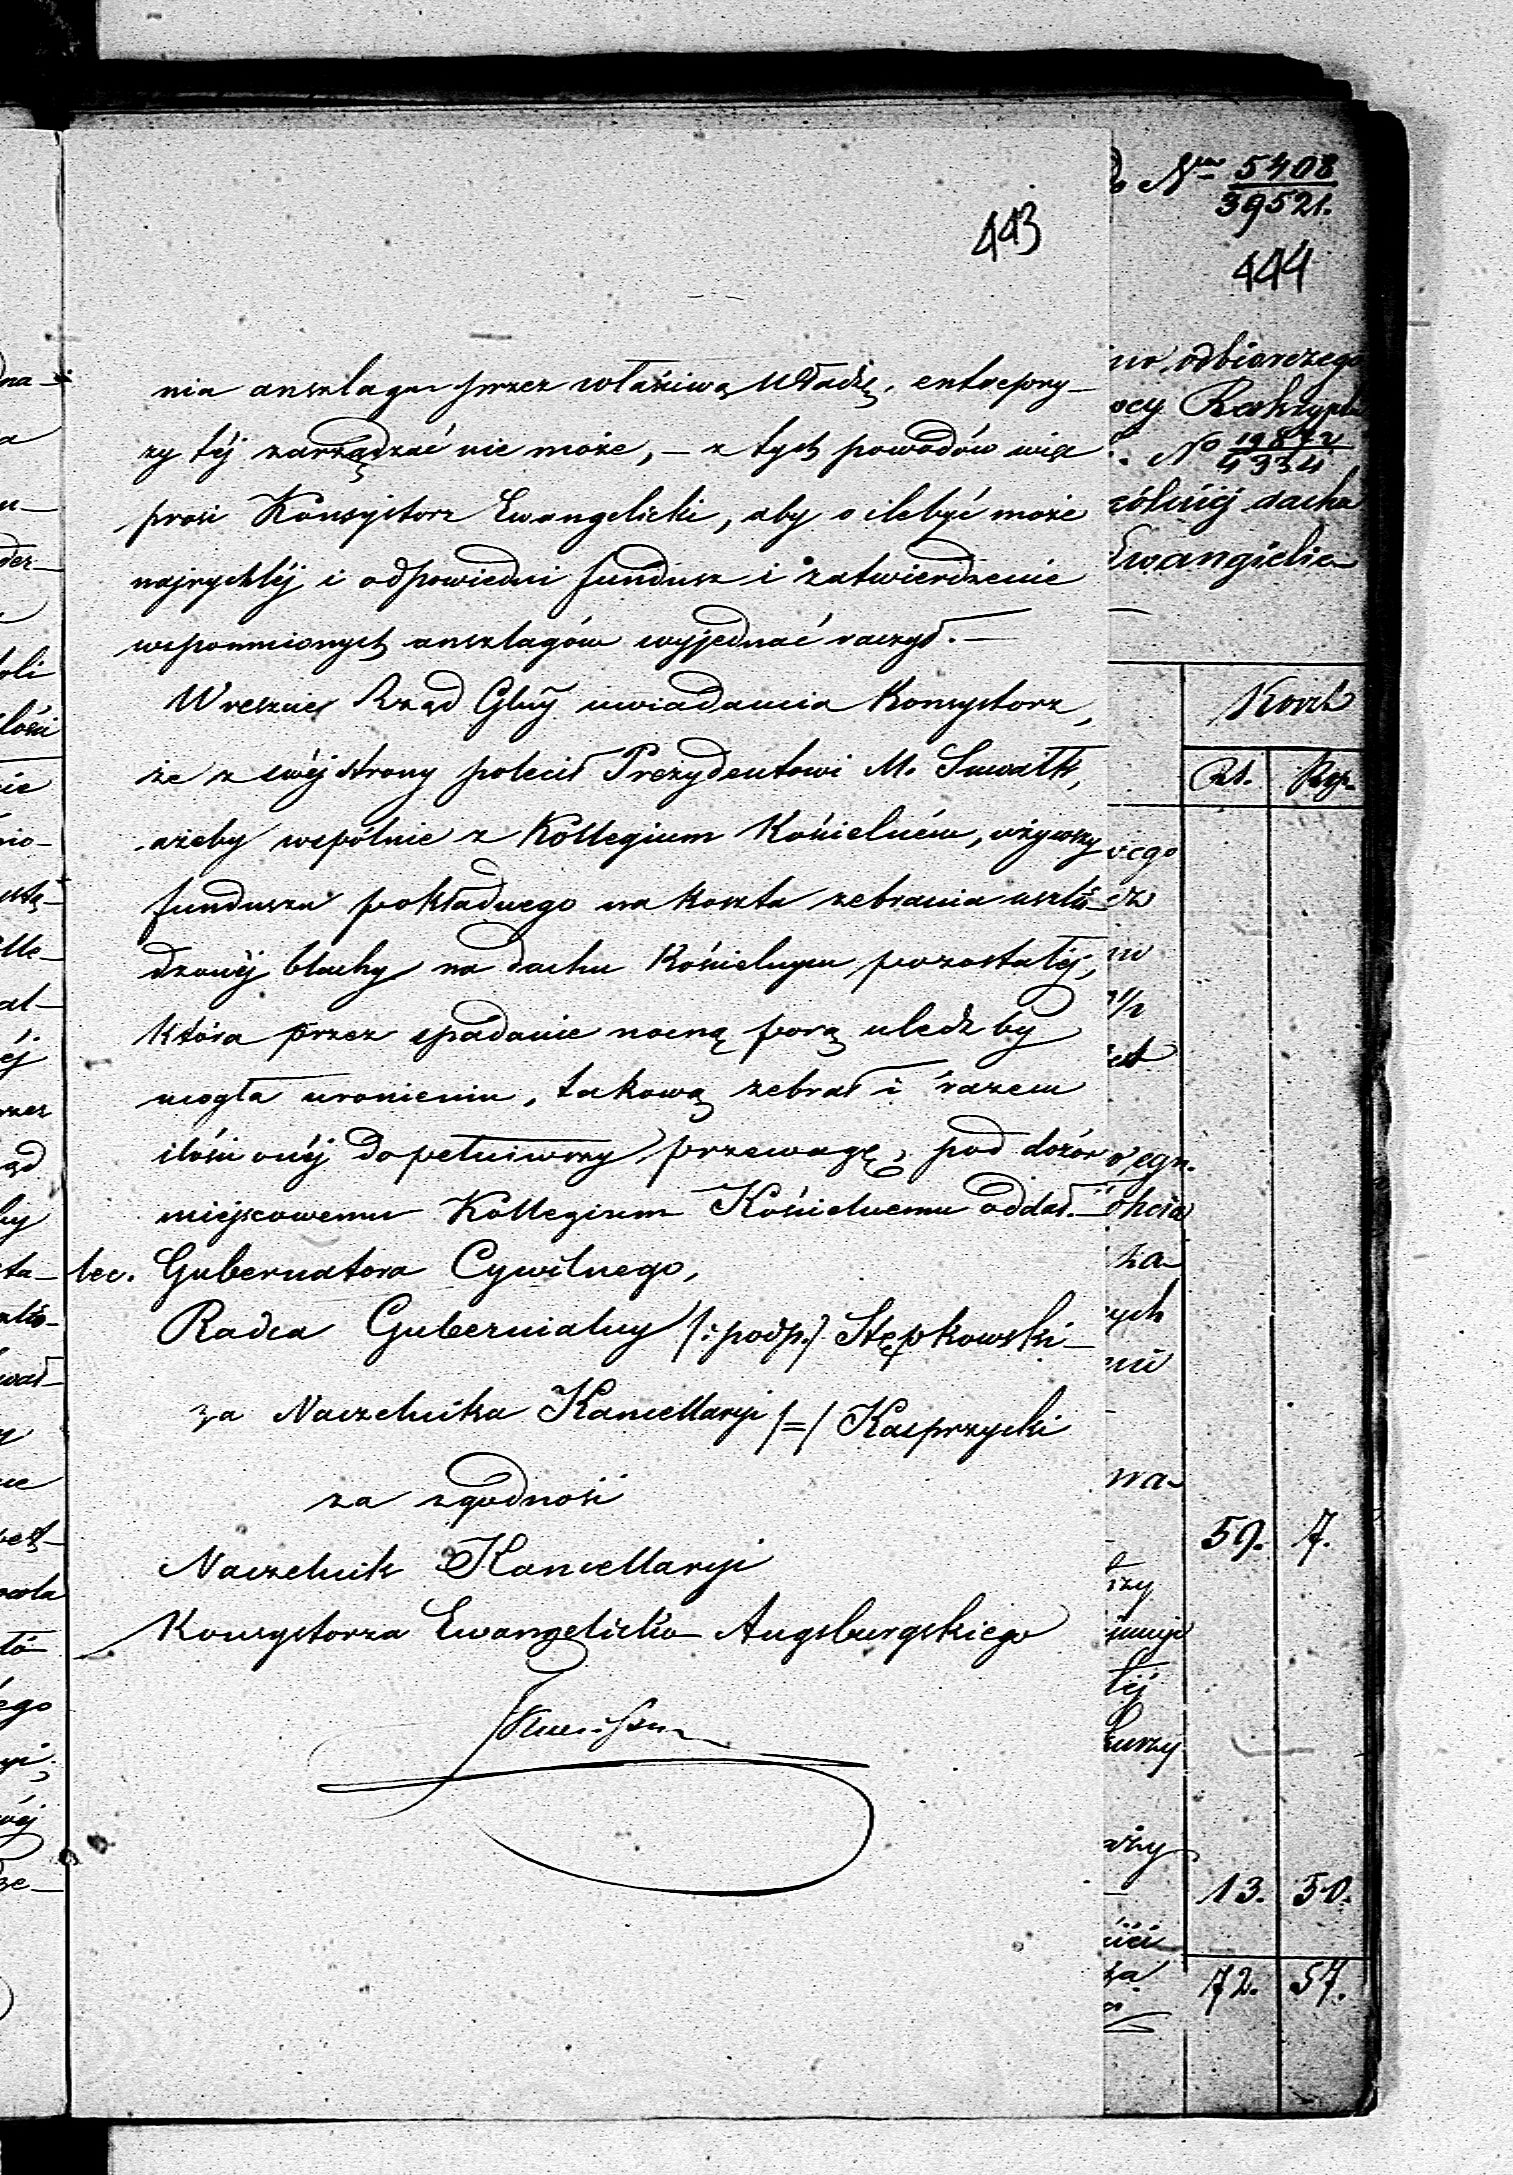 443
nia anszlagu przez właściwą Władzę, entrepry-
zy téj zarządzać nie może, – z tych powodów więc
prosi Konsystorz Ewangelicki, aby o ile być może
najrychléj i odpowiedni fundusz i zatwierdzenie
wspomnionych anszlagów wyjednać raczył. –
Wreszcie Rząd Glny uwiadamia Konsystorz,
że z swéj strony polecił Prezydentowi M. Suwałk,
ażeby wspólnie z Kollegium Kościelném, używszy
funduszu pokładnego na koszta zebrania uszko-
dzonéj blachy na dachu Kościelnym pozostałéj,
która przez spadanie nocną porą uledz by
mogła uronieniu, takową zebrał i razem
ilości onéj dopełniwszy przewagę, pod dozór
miejscowemu Kollegium Kościelnemu oddał. –
Gubernatora Cywilnego,
Radca Gubernialny /:podp./ Stępkowski –
za Naczelnika Kancellaryi /=/ Kasprzycki
za zgodność
Naczelnik Kancellaryi
Konsystorza Ewangelicko Augsburgskiego
No 5408
39521.
444
odbiorczego
Reskryptu
No 19872
4934
dachu
Ewangielic
Koszt
Rs. Kop.
59. 7.
13. 50.
72. 57.